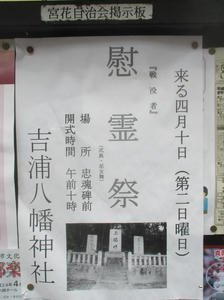 宮花自治会掲示板
来る四月十日（第二日曜日）
『戦没者』
慰霊祭
場所 忠魂碑前
開式時間 午前十時
吉浦八幡神社